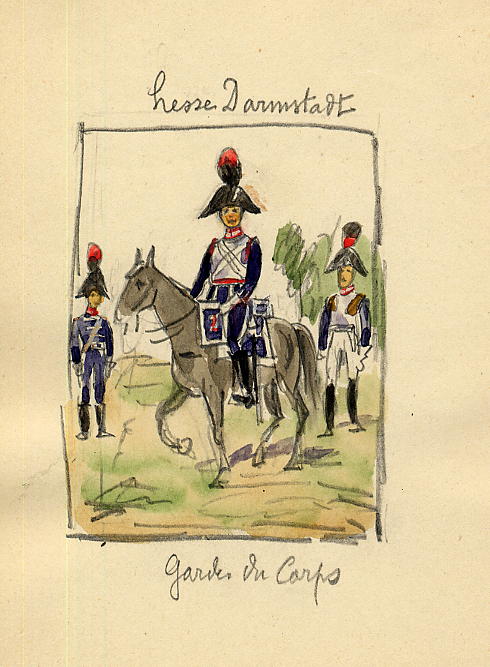 Hesse Darmstadt
Garde du Corps